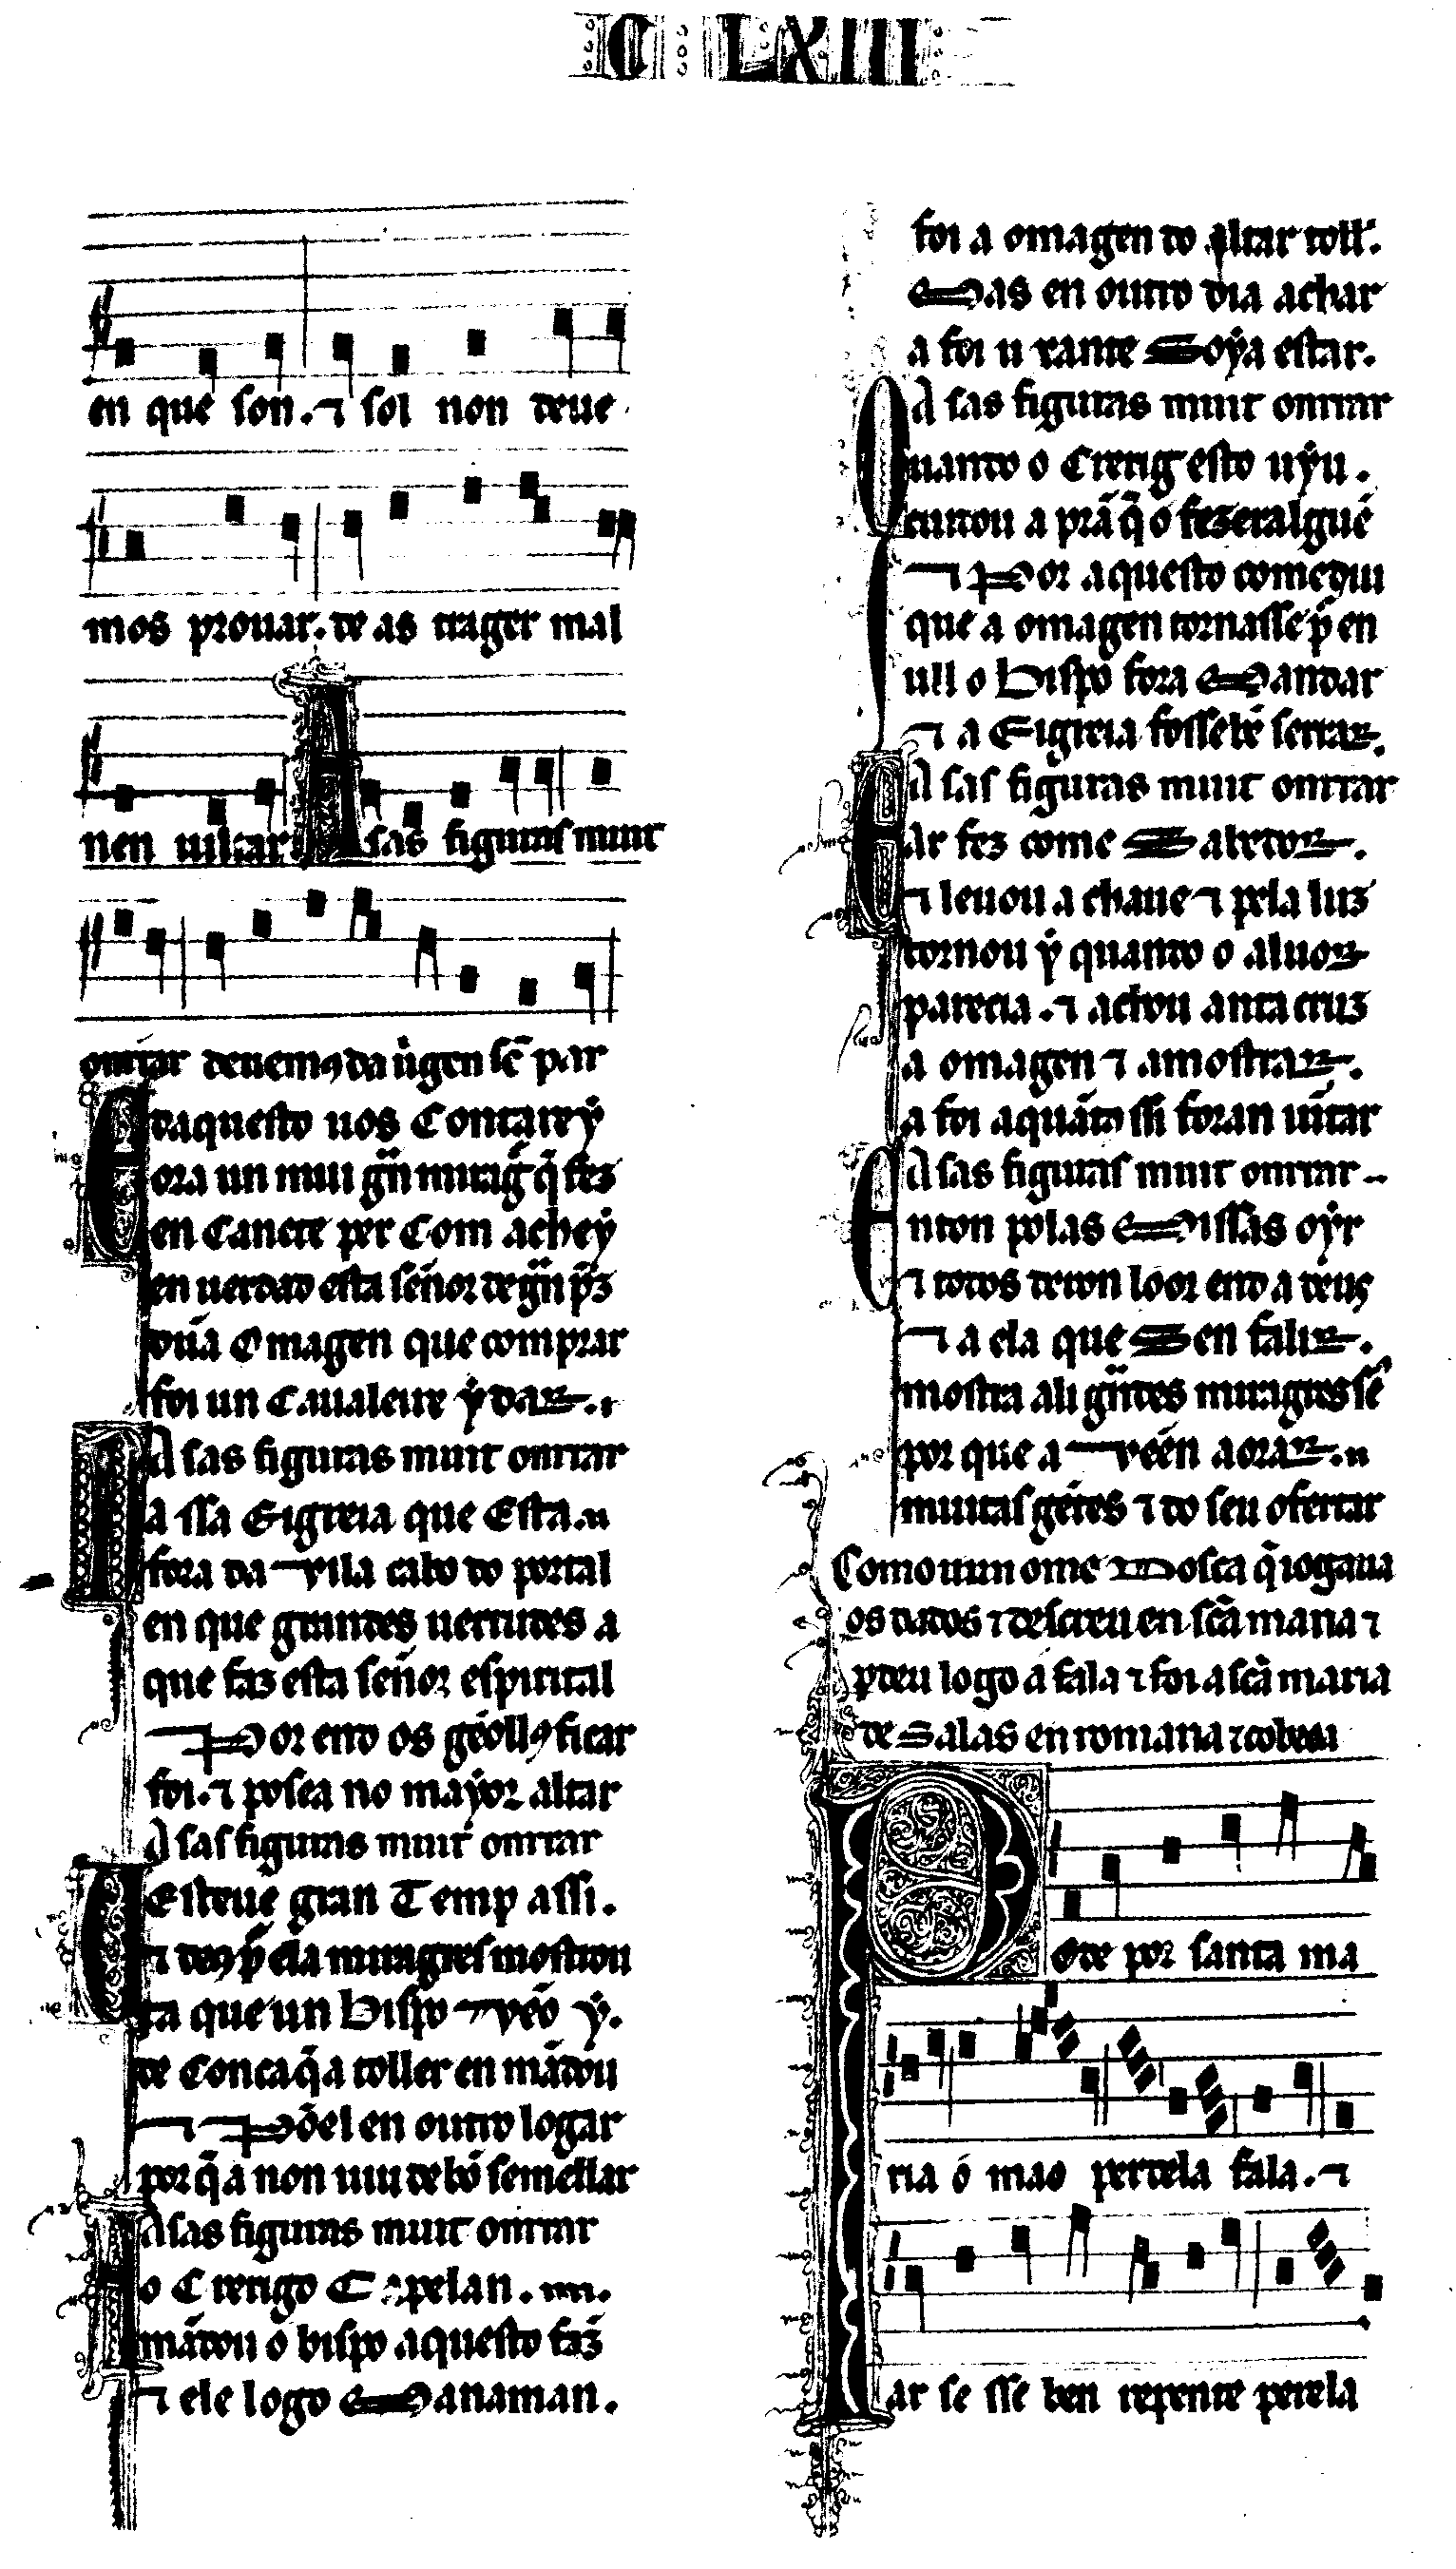 C LXIII
en que son. ⁊ sol non deue
mos prouar. de as trager mal
nen uiltar A sas figuras muit
onrrar deuemꝯ da uirgen sẽ par
E daquesto uos Contarey
ora un mui gñ miragr̃ q̃ fez
en Canete per Com achey
en uerdade esta sẽnor de gñ p̃z
dũa Omagen que comprar
foi un Caualeire ẏ dar.
A sas figuras muit onrrar
Na ssa Eigreia que Esta.
fora da vila cabo do portal
en que grandes uertudes a
que faz esta sẽnor espirital
Por endo os gẽollꝯ ficar
foi. ⁊ pose a no mayor altar
A sas figuras muit onrrar
E steue gran Temp assi.
⁊ deꝯ p̃ ela miragres mostrou
ta que un Bispo vẽo ẏ.
de Conca q̃ a toller en mãdou
⁊ Põela en outro logar
por q̃ a non uiu de bõ semellar
A sas figuras muit onrrar
Ao Crerigo Capelan.
mãdou o bispo aquesto faz̃
⁊ ele logo Manaman.
foi a omagen do altar toll̃.
Mas en outro dia achar
a foi u xante Soya estar.
A sas figuras muit onrrar
Quanto o Crerig esto uẏu.
cuidou a prã q̃ o fezera alguẽ
⁊ Por aquesto comediu
que a omagen tornasse p̃ en
u ll o Bispo fora Mandar
⁊ a Eigreia fosse bẽ serrar.
A sas figuras muit onrrar
E ar fez come Sabedor.
⁊ leuou a chaue ⁊ pela luz
tornou ẏ quando o aluor
parecia. ⁊ achou ant a cruz
a omagen ⁊ amostrar.
a foi a quãtos ss̃i foran uiñtar
A sas figuras muit onrrar
Enton polas Missas oẏr
⁊ todos deron loor endo a deus
⁊ a ela que Sen falir.
mostra ali gñdes miragres sẽ
por que a vẽen aorar.
muitas gẽtes ⁊ do seu ofertar
Como un ome Dosca q̃ iogaua
os dados ⁊ descreu en scã maria ⁊
ꝑdeu logo a fala ⁊ foi a scã maria
de Salas en romaria ⁊ cobroua
Pode por santa ma
ria o mao perdela fala. ⁊
ar se sse ben repente perela